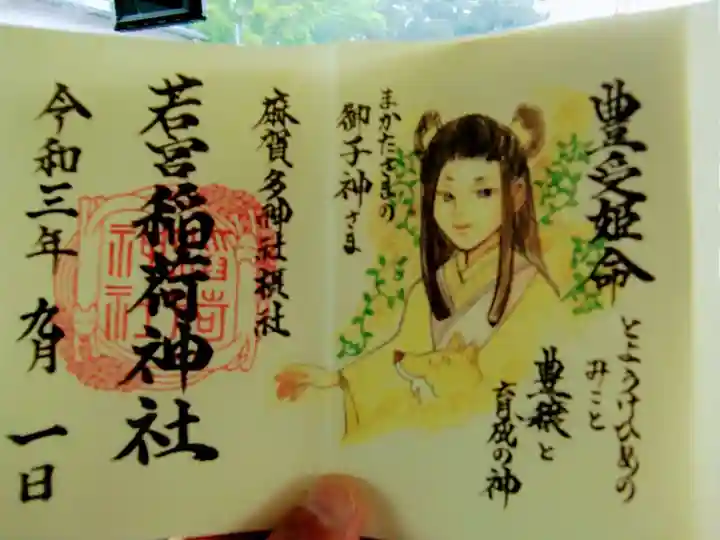 豊受姫命
とようけひめの
みこと
豊穣と
育成の神
まかたさまの
御子神さま
麻賀多神社摂社
若宮稲荷神社
令和三年 九月 一日